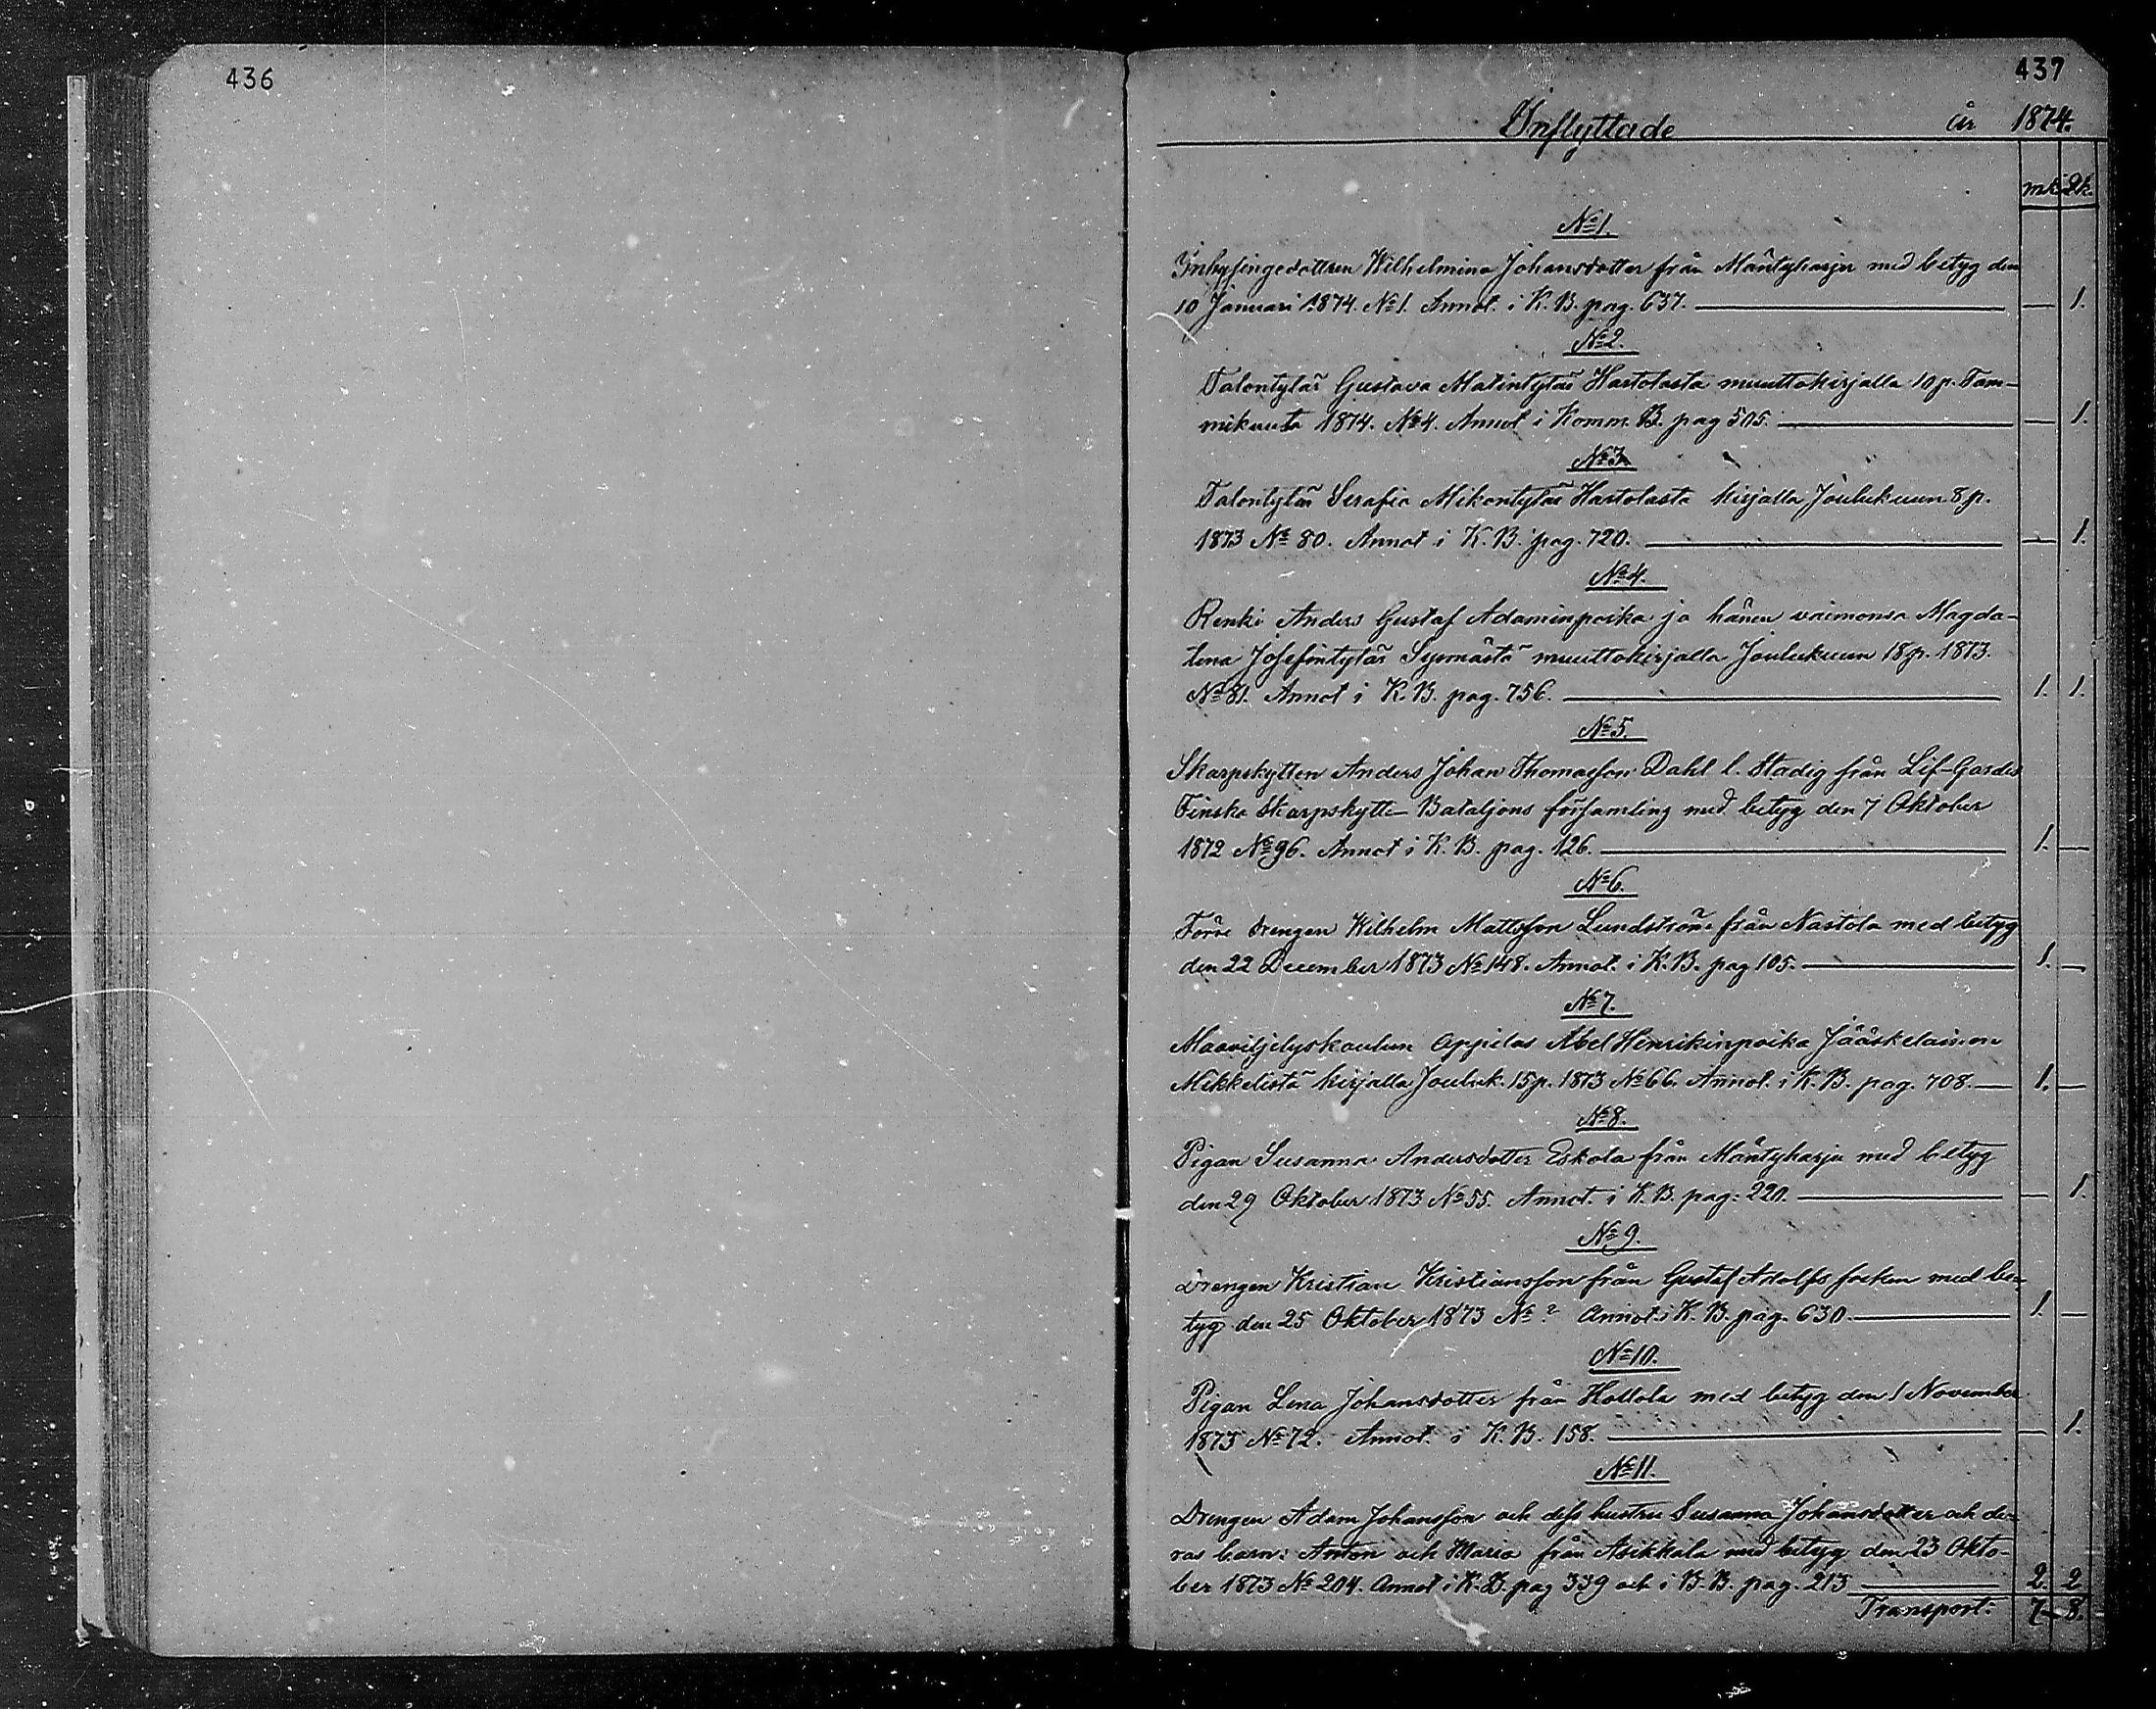 436
437
Inflyttade år 1874.
mk. qk.
No 1.
Inhysingedottren Wilhelmina Johansdotter från Mäntyharju med betyg den
10 Januari 1874. No 1. Annot. i K. B. pag. 637. — 1.
No 2.
Talontytär Gustava Matintytär Hartolasta muuttokirjalla 10 p. Tam-
mikuuta 1874. No 4. Annot i Komm. B. pag 505. — 1.
No 3.
Talontytär Serafia Mikontytär Hartolasta kirjalla Joulukuun 8 p.
1873 No 80. Annot i K. B. pag. 720. — 1.
No 4.
Renki Anders Gustaf Adaminpoika ja hänen vaimonsa Magda-
lena Josefintytär Sysmästä muuttokirjalla Joulukuun 18 p. 1873.
No 81. Annot i K. B. pag. 756. 1. 1.
No 5.
Skarpskytten Anders Johan Thomasson Dahl l. Stadig från Lif-Gardes
Finska Skarpskytte-Bataljons församling med betyg den 7 Oktober
1872 No 96. Annot i K. B. pag. 126. 1. —
No 6.
Förre drengen Wilhelm Mattsson Lundström från Nastola med betyg
den 22 December 1873 No 148. Annot. i K. B. pag 105. 1. —
No 7.
Maaviljelyskoulun oppilas Abel Henrikinpoika Jääskelainen
Mikkelistä kirjalla Jouluk. 15 p. 1873 No 66. Annot. i K. B. pag. 708. 1. —
No 8.
Pigan Susanna Andersdotter Eskola från Mäntyharju med betyg
den 29 Oktober 1873 No 55. Annot. i K. B. pag. 220. — 1.
No 9.
Drengen Kristian Kristiansson från Gustaf Adolfs socken med be-
tyg den 25 Oktober 1873 No ? Annot. i K. B. pag. 630. 1. —
No 10.
Pigan Lena Johansdotter från Hollola med betyg den 1 November
1873 No 72. Annot. i K. B. 158. — 1.
No 11.
Drengen Adam Johansson och dess hustru Susanna Johansdotter och de-
ras barn: Anton och Maria från Asikkala med betyg den 23 Okto-
ber 1873 No 204. Annot i K. B. pag 339 och i B. B. pag. 213 2. 2
Transport: 7. 8.